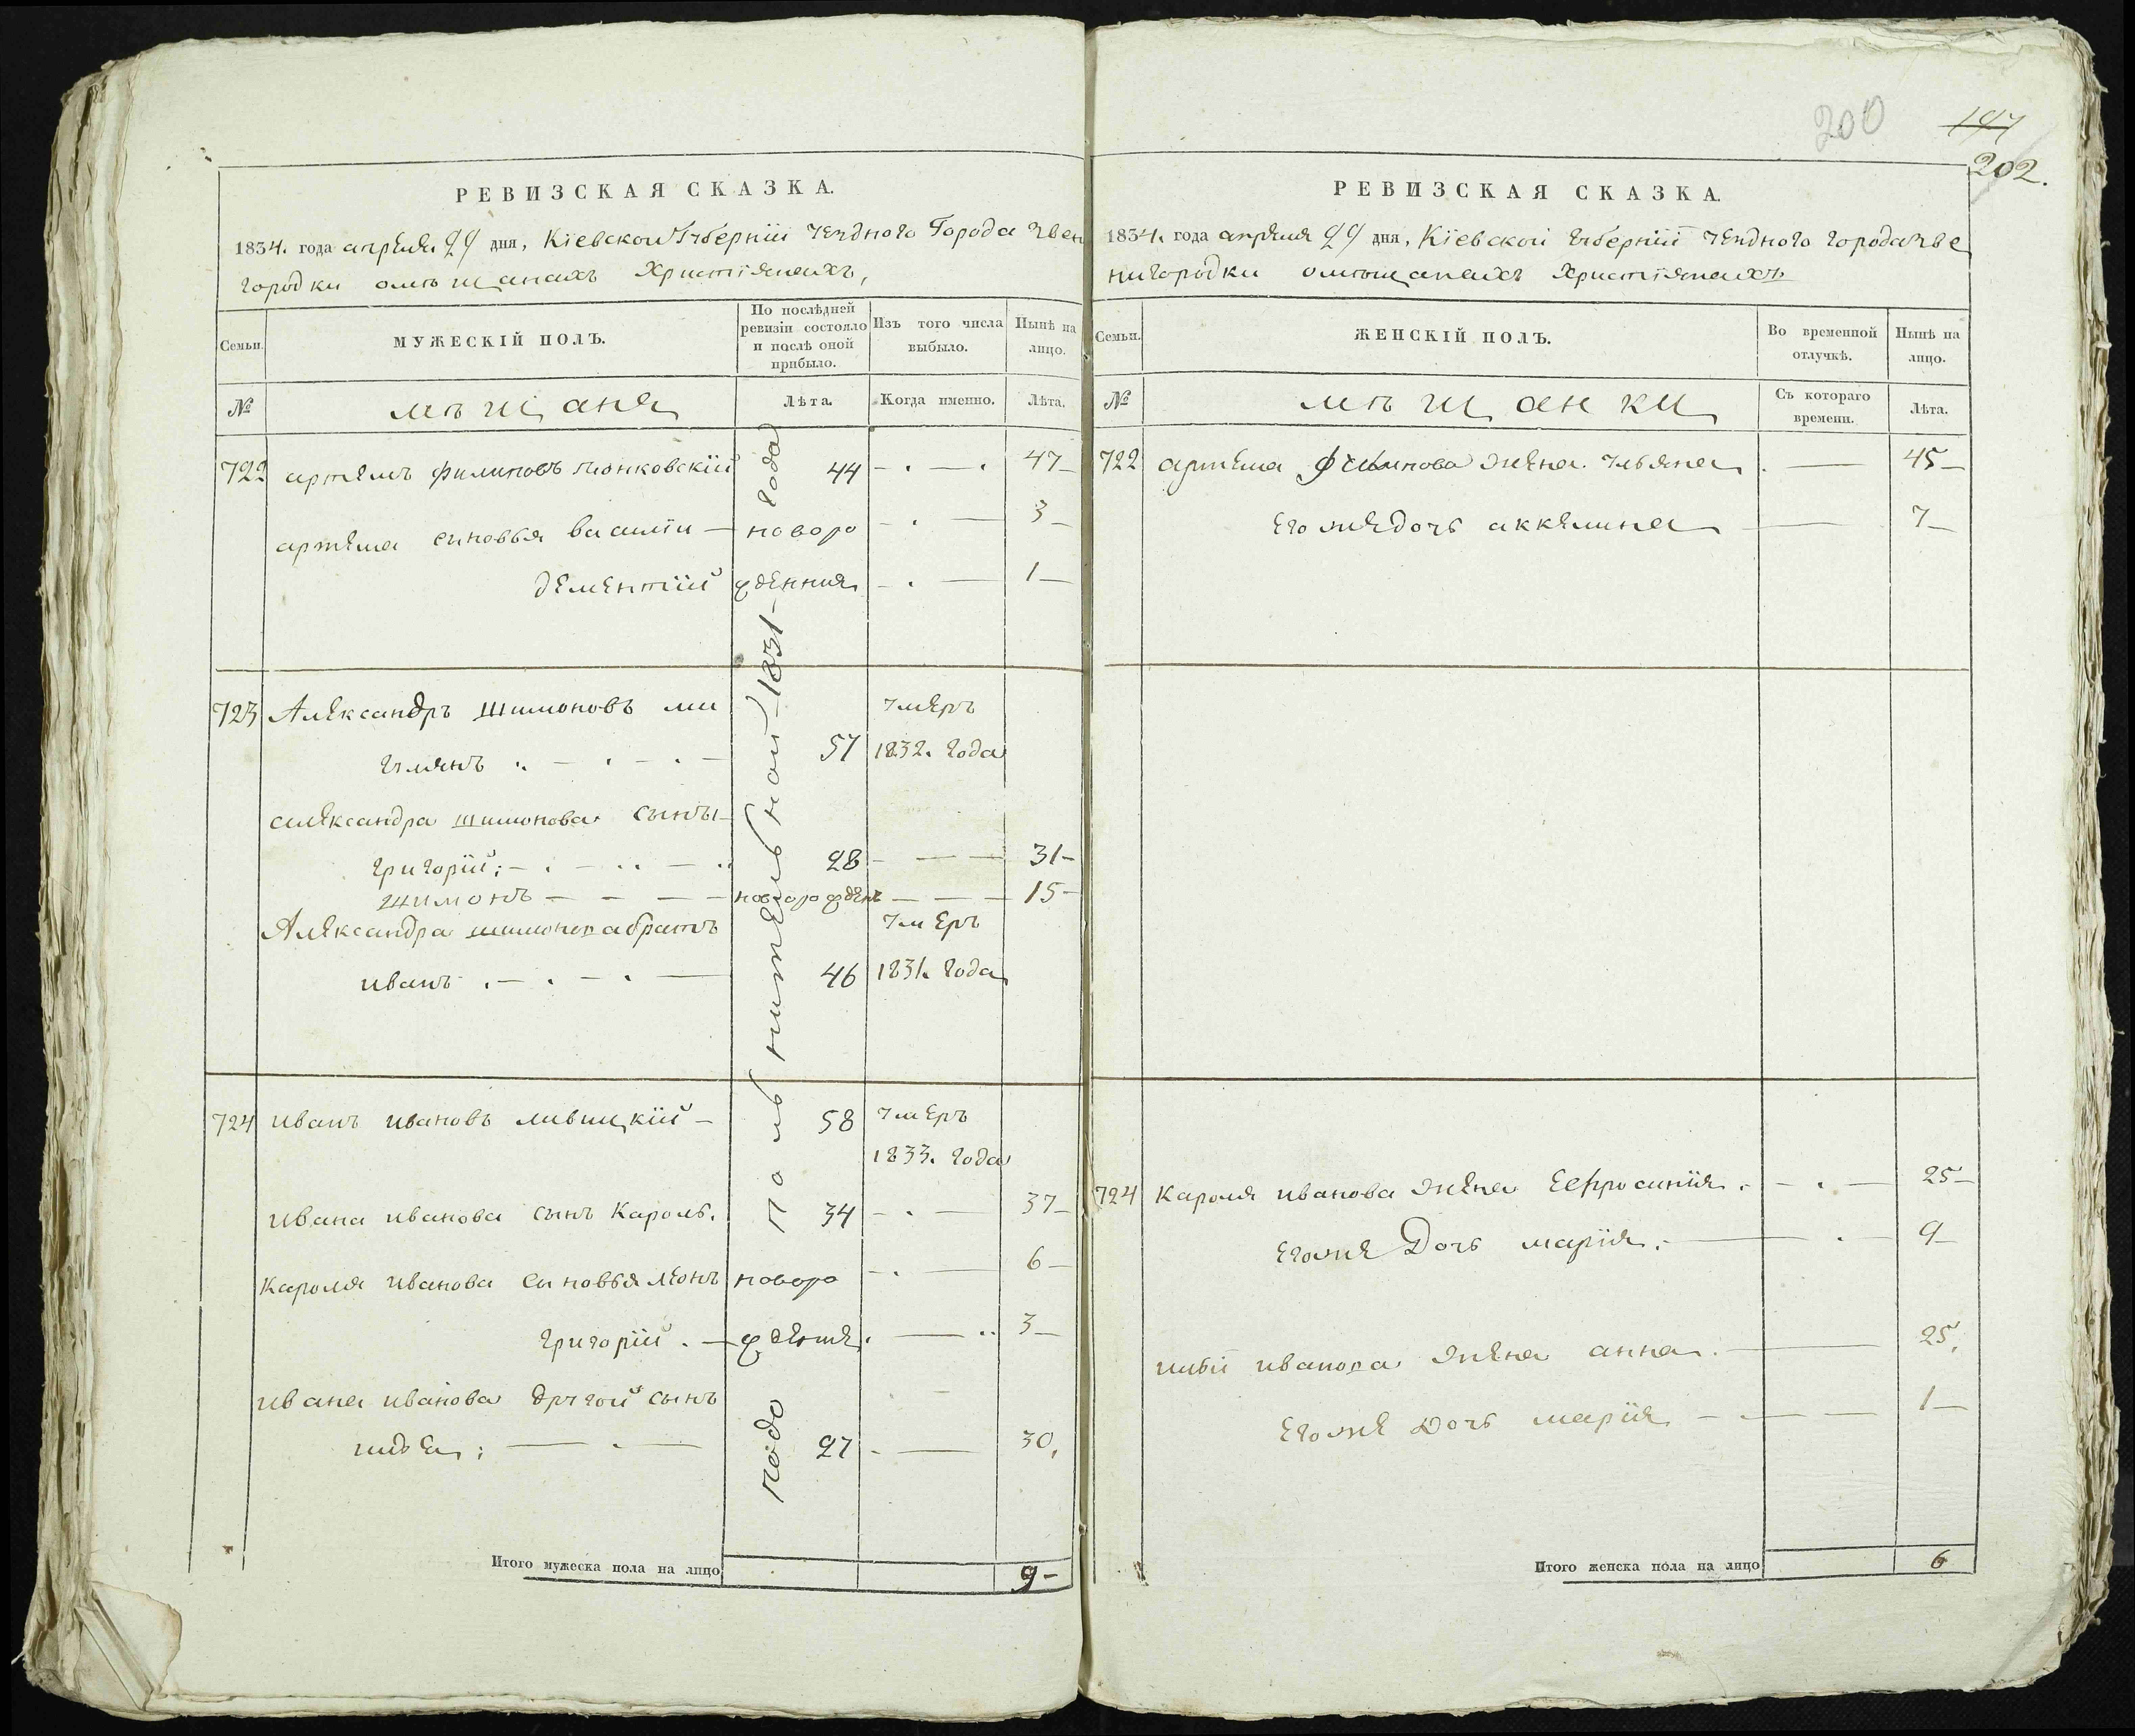 200
197
202.
РЕВИЗСКАЯ СКАЗКА.
1834. года апреля 29 дня, Кіевской Губерніи уездного Города Звен
городки о мѣщанахъ Христіянахъ,
Семьи.
МУЖЕСКІЙ ПОЛЪ.
По послѣдней ревизіи состояло и послѣ оной прибыло.
Изъ того числа выбыло.
Нынѣ на лицо.
№
мѣщаня
Лѣта.
Когда именно.
Лѣта.
722 артемъ филиповъ 44 47
артема синовья васили новоро 3
дементий жденния 1
723 Александръ шимоновъ ми
57 умеръ 1832. года
александра шимонова сыны
григорій: 28 31
шимонъ новорожденъ 15
Александра шимонова братъ умеръ
иванъ 46 1831. года
724 иванъ ивановъ ливицкій 58 умеръ
1833. года
ивана иванова сынъ Кароль. 34 37
Кароля иванова синовья леонъ новоро 6
григорій. 3
ивана иванова другой сынъ
илья: 27 30.
по дополнительной 1831 года
Итого мужеска пола на лицо 9
РЕВИЗСКАЯ СКАЗКА.
1834. года апреля 29 дня, Кіевской губерніи уездного города Зве
нигородки о мѣщанахъ Христіянахъ
Семьи.
ЖЕНСКІЙ ПОЛЪ.
Во временной отлучкѣ.
Нынѣ на лицо.
№
мѣщанки
Съ котораго времени.
Лѣта.
722 артема Филипова жена ульяна 45
его же дочь аккелина 7
724 Кароля иванова жена Еефросинія. 25
его же Дочь марія. 9
ильи иванова жена анна. 25.
его же Дочь марія 1
Итого женска пола на лицо 6